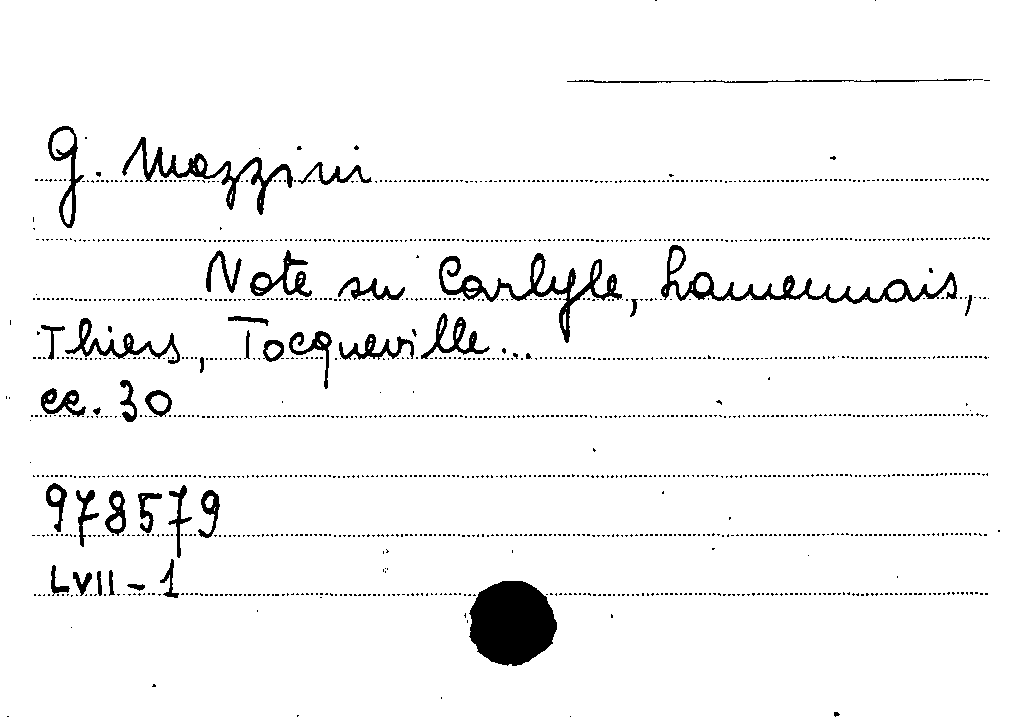 G. Mazzini
Note su Carlyle, Lamennais,
Thiers, Tocqueville...
cc. 30
978579
LVII - 1